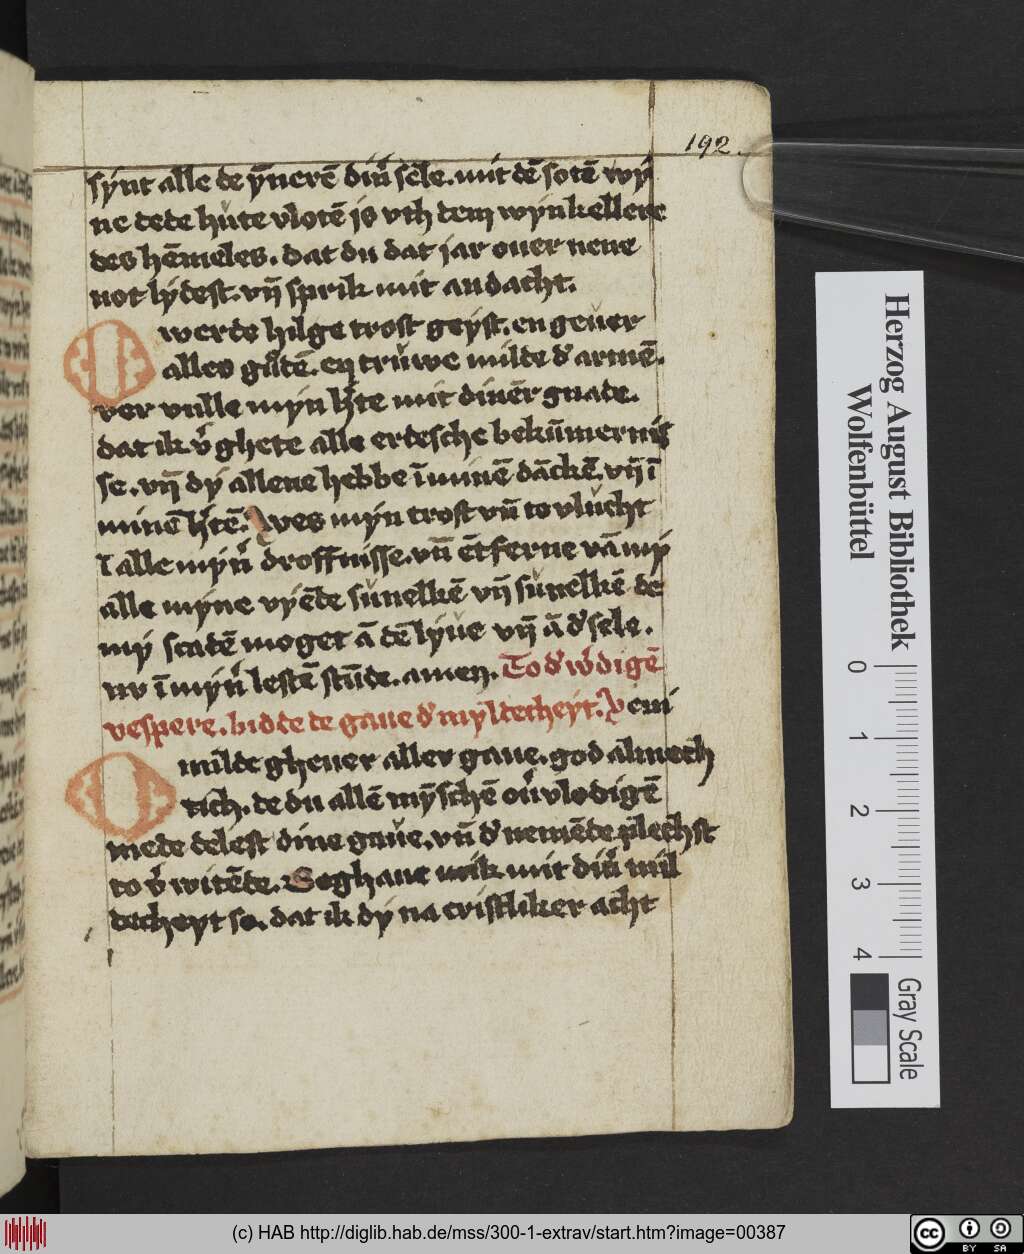 192.
synt alle de ẏnerē din̄ sele. mit dē sotē wy
ne dede hute vlotē is vth dem wynkellere
des hēmeles. dat du dat jar ouer nene
not lydest. vn̄ sprik mit andacht.
O werde hilge trost geyst. en geuer
alles gůdē. en truwe milde dʼ armē.
vor vulle myn hʼte mit dinēr gnade.
dat ik vʼghete alle erdesche bekūmernis
se. vn̄ dy allene hebbe ī minē dāckē. vn̄ ī
minē hʼtē. Wes myn trost vn̄ to vlucht
ī alle mynʼ droffnisse. vn̄ ētferne vā my
alle myne vyēde sunelkē vn̄ sunelkē de
my scadē moget ā dē lyue vn̄ ā dʼ sele.
nv ī mynʼ lestē stūde. amen. To dʼ wʼdigē
vespere. bidde de gaue dʼ myldecheyt. Veni
O milde gheuer aller gaue. god almech
tich. de du allē mȳschē ouʼvlodigē
mede delest dine gaue. vn̄ dʼ nemēde plechst
to vʼwitēde. Beghaue mik mit dinʼ mil
decheyt so. dat ik dy na cristliker acht
Herzog August Bibliothek
Wolfenbüttel
0
1
2
3
4
Gray Scale
(c) HAB http://diglib.hab.de/mss/300-1-extrav/start.htm?image=00387
cc
BY SA